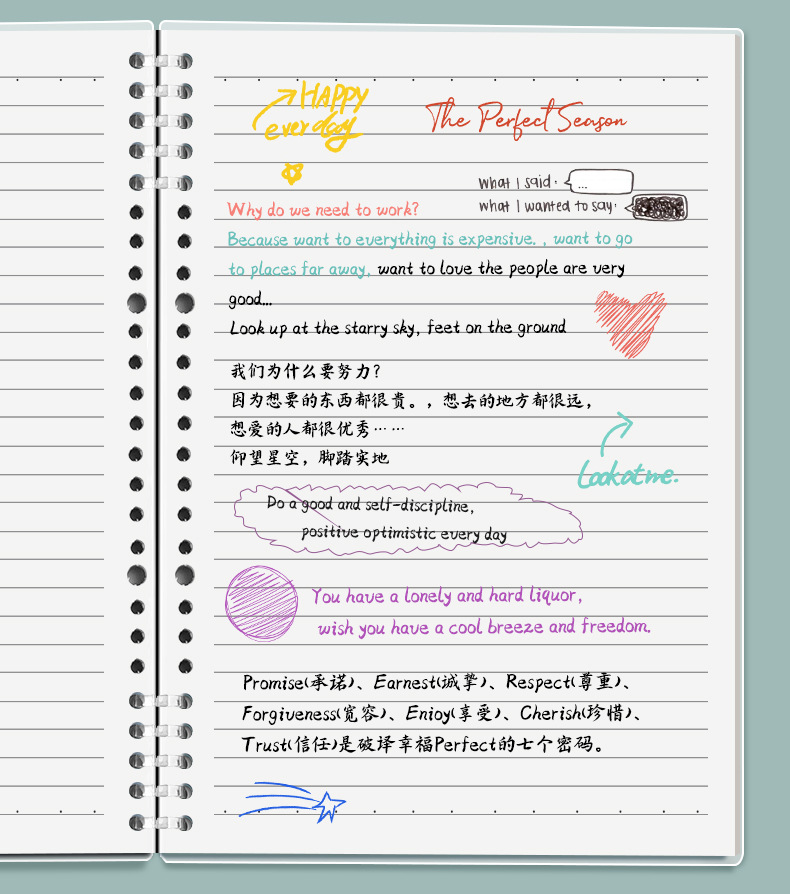 HAPPY
everday
The Perfect Season
what I said: ...
what I wanted to say:
Why do we need to work?
Because want to everything is expensive. , want to go
to places far away, want to love the people are very
good...
Look up at the starry sky, feet on the ground
我们为什么要努力?
因为想要的东西都很贵。, 想去的地方都很远,
想爱的人都很优秀……
仰望星空, 脚踏实地
Look at me.
Do a good and self-discipline,
positive optimistic every day
You have a lonely and hard liquor,
wish you have a cool breeze and freedom.
Promise(承诺)、Earnest(诚挚)、Respect(尊重)、
Forgiveness(宽容)、Enioy(享受)、Cherish(珍惜)、
Trust(信任)是破译幸福Perfect的七个密码。